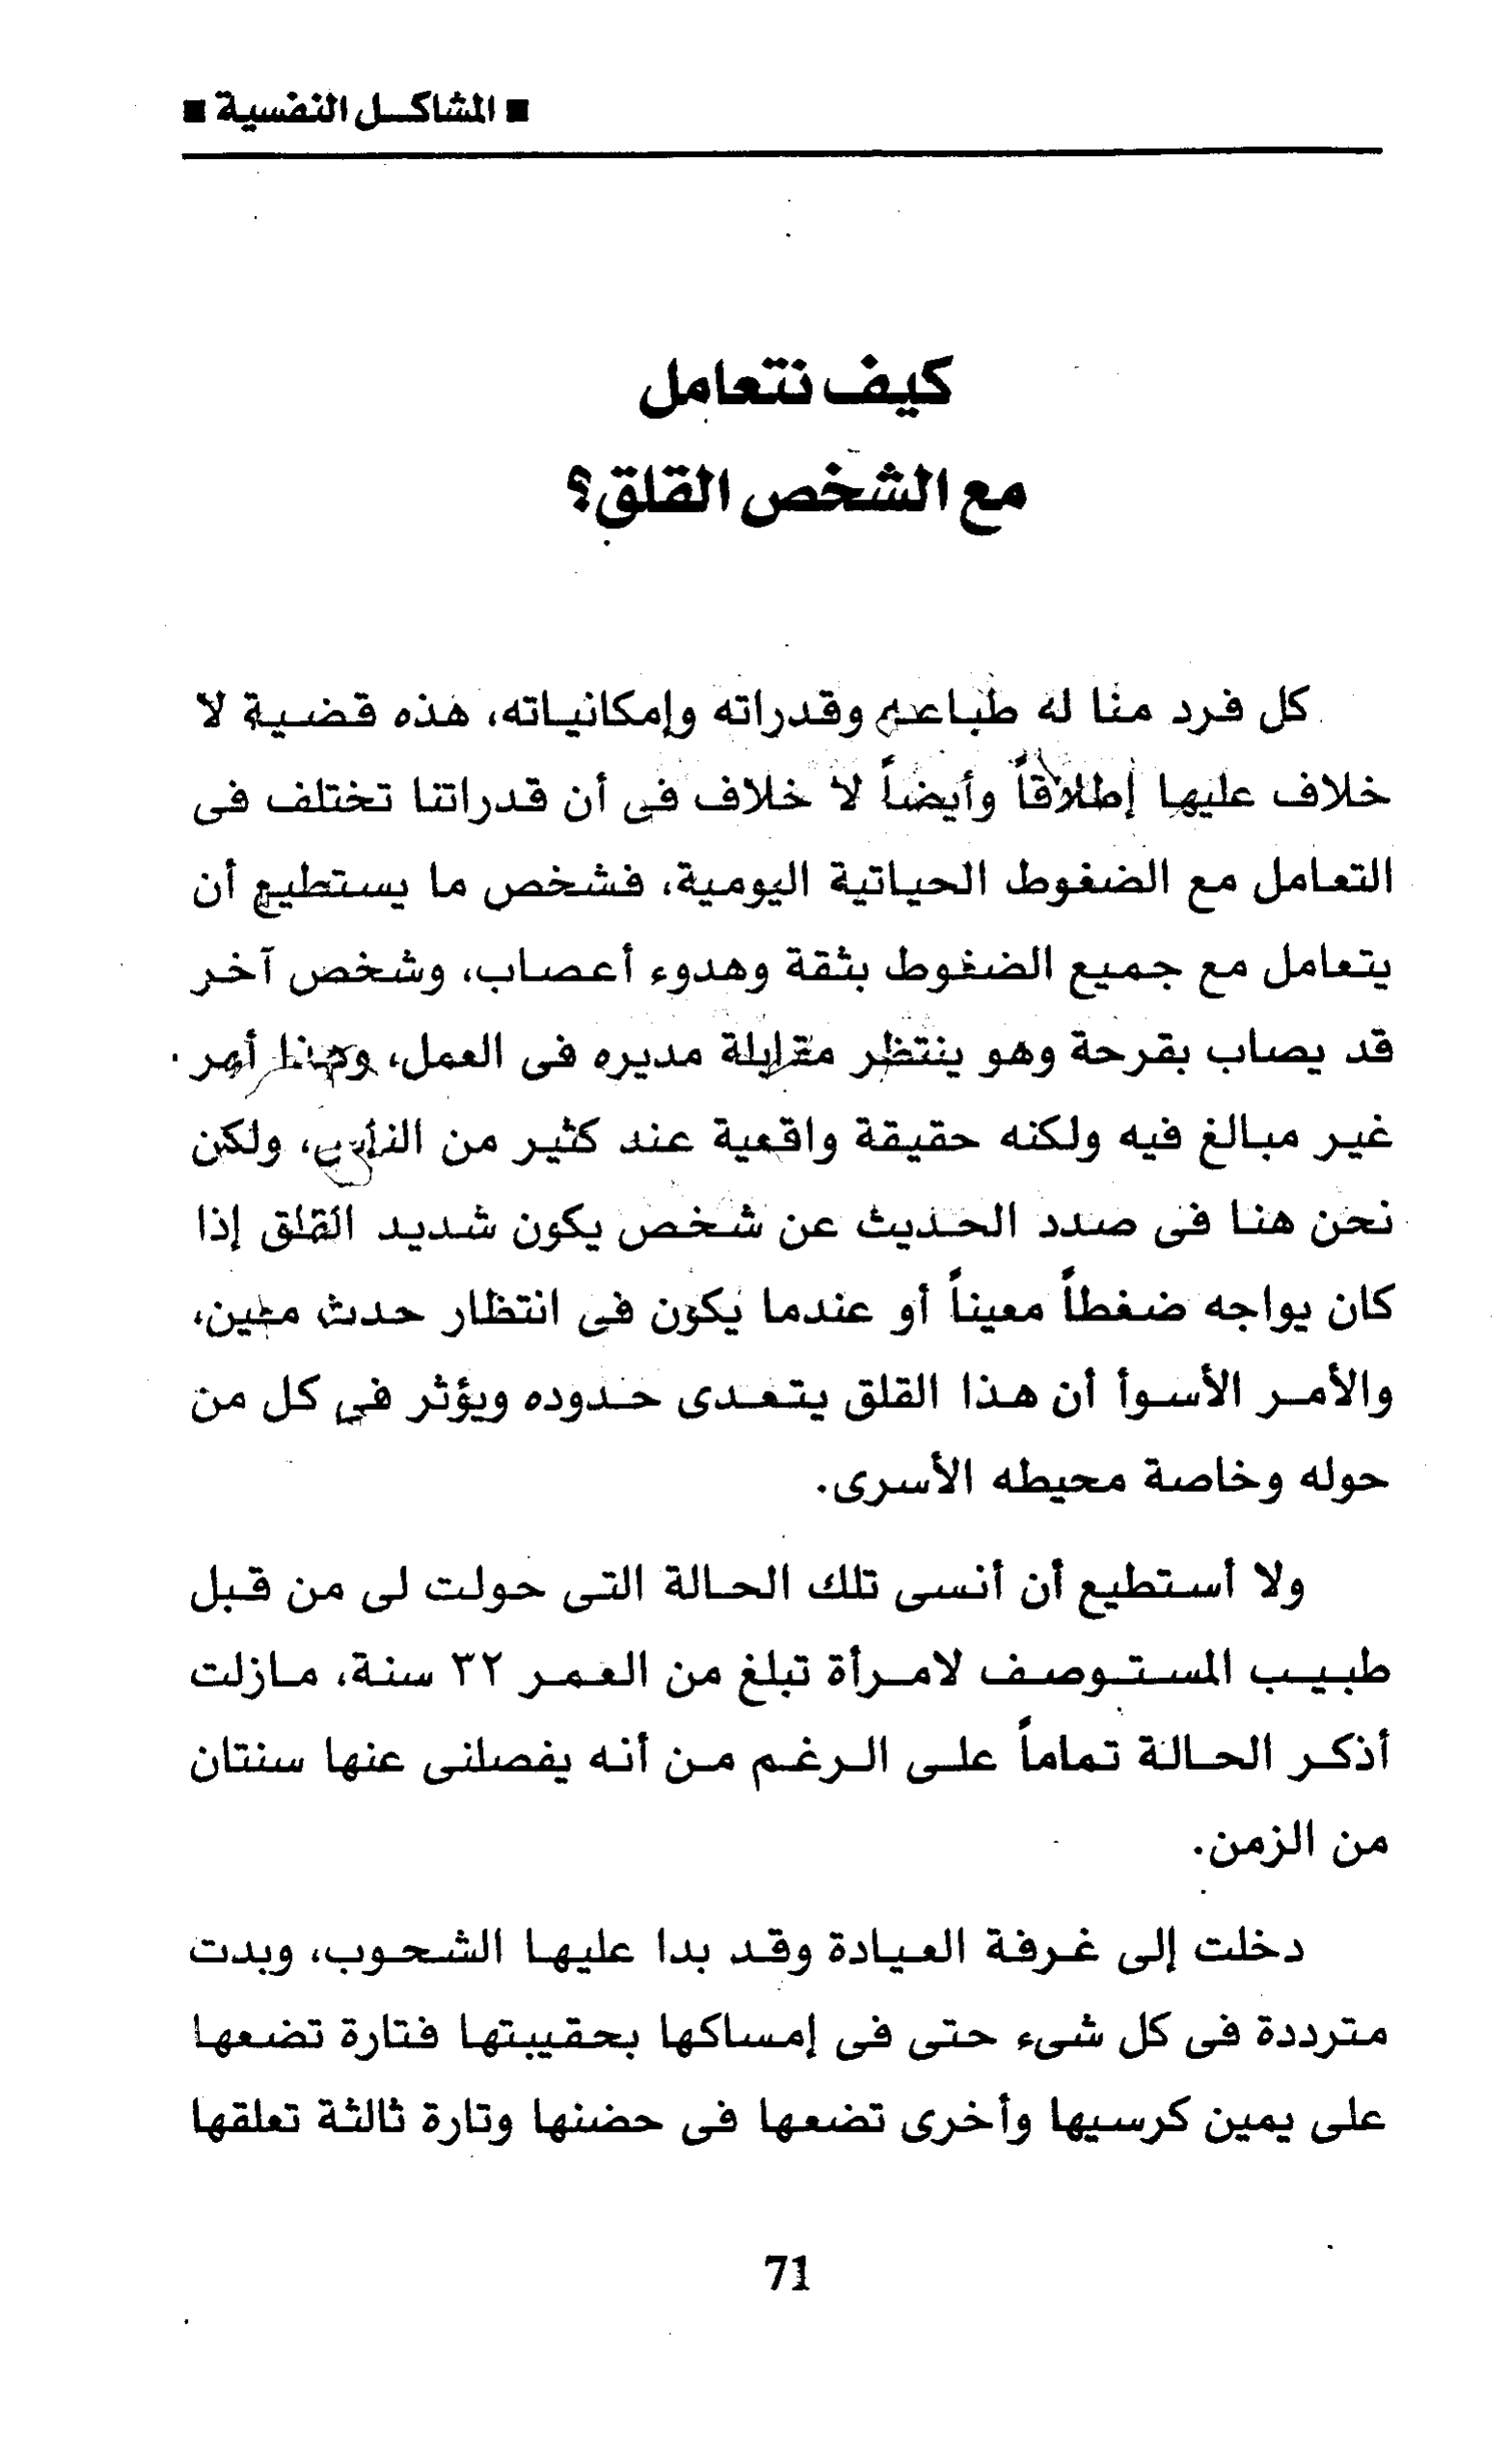 ■ المشاكل النفسية ■
كيف نتعامل
مع الشخص القلق؟
كل فرد منا له طباعه وقدراته وإمكانياته، هذه قضية لا
خلاف عليها إطلاقاً وأيضاً لا خلاف فى أن قدراتنا تختلف فى
التعامل مع الضغوط الحياتية اليومية، فشخص ما يستطيع أن
يتعامل مع جميع الضغوط بثقة وهدوء أعصاب، وشخص آخر
قد يصاب بقرحة وهو ينتظر مقابلة مديره فى العمل، وهذا أمر
غير مبالغ فيه ولكنه حقيقة واقعية عند كثير من الناس، ولكن
نحن هنا فى صدد الحديث عن شخص يكون شديد القلق إذا
كان يواجه ضغطاً معيناً أو عندما يكون فى انتظار حدث معين،
والأمر الأسوأ أن هذا القلق يتعدى حدوده ويؤثر فى كل من
حوله وخاصة محيطه الأسرى.
ولا أستطيع أن أنسى تلك الحالة التى حولت لى من قبل
طبيب المستوصف لامرأة تبلغ من العمر ٣٢ سنة، مازلت
أذكر الحالة تماماً على الرغم من أنه يفصلنى عنها سنتان
من الزمن.
دخلت إلى غرفة العيادة وقد بدا عليها الشحوب، وبدت
مترددة فى كل شىء حتى فى إمساكها بحقيبتها فتارة تضعها
على يمين كرسيها وأخرى تضعها فى حضنها وتارة ثالثة تعلقها
71